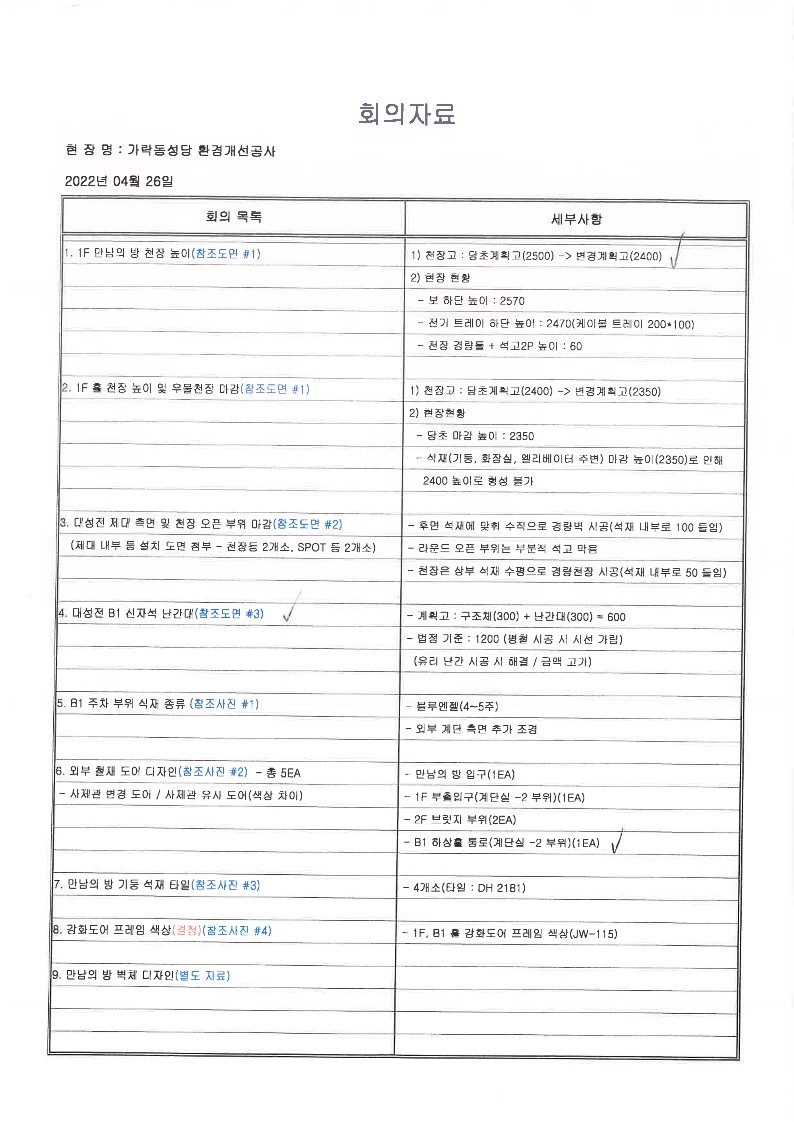 회의자료
현 장 명 : 가락동성당 환경개선공사
2022년 04월 26일
회의 목록
세부사항
1. 1F 만남의 방 천장 높이(참조도면 #1)
1) 천장고 : 당초계획고(2500) -> 변경계획고(2400)
2) 현장 현황
- 보 하단 높이 : 2570
- 전기 트레이 하단 높이 : 2470(케이블 트레이 200*100)
- 천장 경량틀 + 석고2P 높이 : 60
2. 1F 홀 천장 높이 및 우물천장 마감(참조도면 #1)
1) 천장고 : 당초계획고(2400) -> 변경계획고(2350)
2) 현장현황
- 당초 마감 높이 : 2350
- 석재(기둥, 화장실, 엘리베이터 주변) 마감 높이(2350)로 인해
2400 높이로 형성 불가
3. 대성전 제대 측면 및 천장 오픈 부위 마감(참조도면 #2)
(제대 내부 등 설치 도면 첨부 - 천장등 2개소, SPOT 등 2개소)
- 후면 석재에 맞춰 수직으로 경량벽 시공(석재 내부로 100 들임)
- 라운드 오픈 부위는 부분적 석고 막음
- 천장은 상부 석재 수평으로 경량천장 시공(석재 내부로 50 들임)
4. 대성전 B1 신자석 난간대(참조도면 #3)
- 계획고 : 구조체(300) + 난간대(300) = 600
- 법정 기준 : 1200 (병철 시공 시 시선 가림)
(유리 난간 시공 시 해결 / 금액 고가)
5. B1 주차 부위 식재 종류 (참조사진 #1)
- 블루엔젤(4~5주)
- 외부 계단 측면 추가 조경
6. 외부 철재 도어 디자인(참조사진 #2) - 총 5EA
- 사제관 변경 도어 / 사제관 유사 도어(색상 차이)
- 만남의 방 입구(1EA)
- 1F 부출입구(계단실 -2 부위)(1EA)
- 2F 브릿지 부위(2EA)
- B1 하상홀 통로(계단실 -2 부위)(1EA)
7. 만남의 방 기둥 석재 타일(참조사진 #3)
- 4개소(타일 : DH 2181)
8. 강화도어 프레임 색상(결정)(참조사진 #4)
- 1F, B1 홀 강화도어 프레임 색상(JW-115)
9. 만남의 방 벽체 디자인(별도 자료)